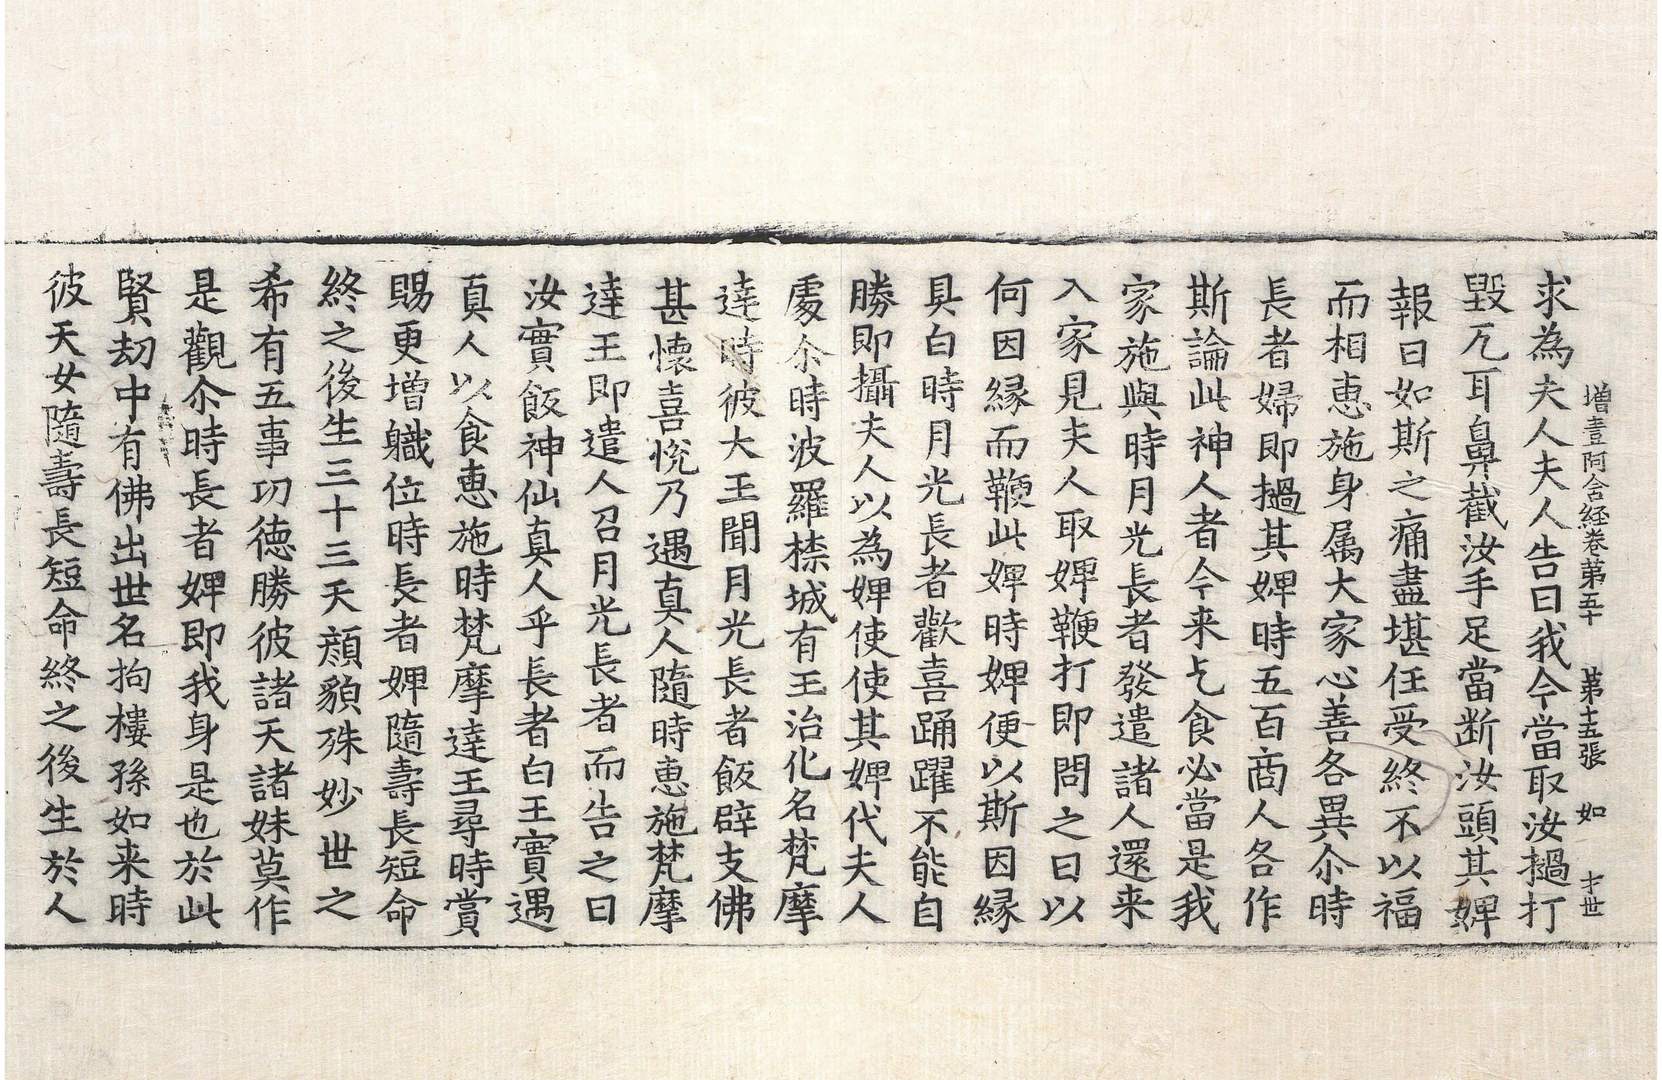 增壹阿含経卷第五十　第十五張　如　才世
求為夫人夫人告曰我今當取汝撾打
毀兀耳鼻截汝手足當断汝頭其婢
報曰如斯之痛盡堪任受終不以福
而相恵施身属大家心善各異尒時
長者婦即撾其婢時五百商人各作
斯論此神人者今来乞食必當是我
家施與時月光長者發遣諸人還来
入家見夫人取婢鞭打即問之曰以
何因縁而鞭此婢時婢便以斯因縁
具白時月光長者歡喜踊躍不能自
勝即攝夫人以為婢使使其婢代夫人
處尒時波羅㮈城有王治化名梵摩
達時彼大王聞月光長者飯辟支佛
甚懷喜悅乃遇真人隨時恵施梵摩
達王即遣人召月光長者而告之曰
汝實飯神仙真人乎長者白王實遇
真人以食恵施時梵摩達王尋時賞
賜更增軄位時長者婢隨壽長短命
終之後生三十三天顏貌殊妙世之
希有五事功徳勝彼諸天諸妹莫作
是觀尒時長者婢即我身是也於此
賢劫中有佛出世名拘樓孫如来時
彼天女隨壽長短命終之後生於人